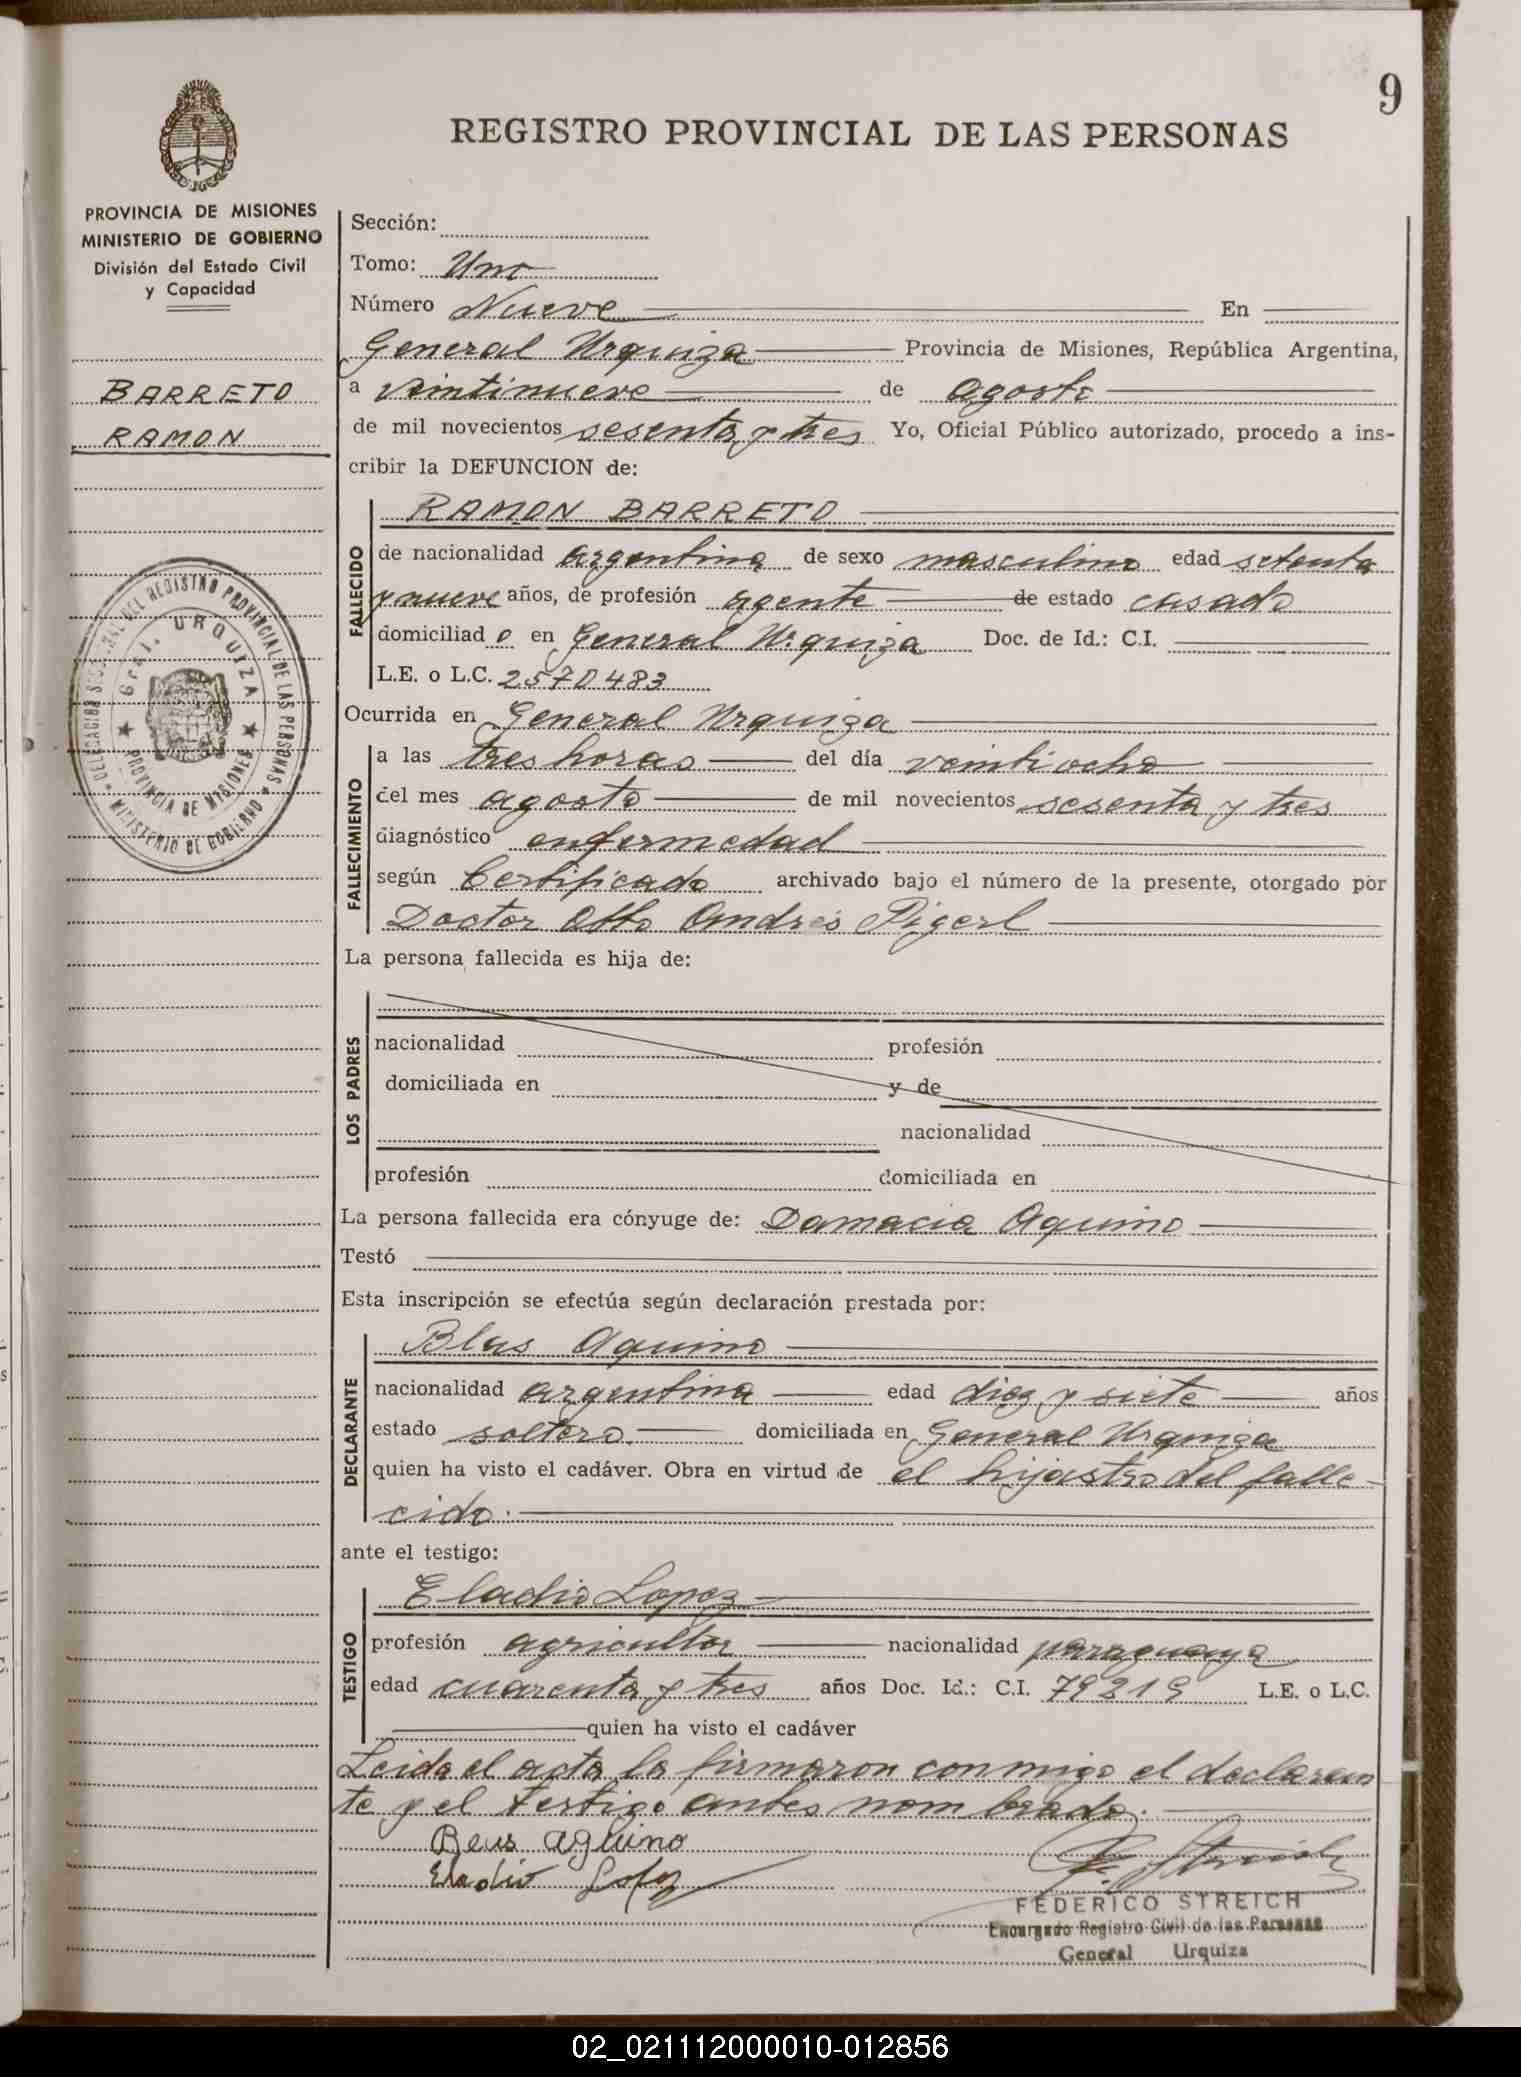 9
REGISTRO PROVINCIAL DE LAS PERSONAS
PROVINCIA DE MISIONES
MINISTERIO DE GOBIERNO
División del Estado Civil
y Capacidad
BARRETO
RAMON
DELEGACION SECCIONAL DEL REGISTRO PROVINCIAL DE LAS PERSONAS
MINISTERIO DE GOBIERNO
Gral. URQUIZA
PROVINCIA DE MISIONES
Sección:
Tomo: Uno
Número Nueve En
General Urquiza Provincia de Misiones, República Argentina,
a veintinueve de agosto
de mil novecientos sesenta y tres Yo, Oficial Público autorizado, procedo a ins-
cribir la DEFUNCION de:
FALLECIDO
RAMON BARRETO
de nacionalidad argentina de sexo masculino edad setenta
y nueve años, de profesión agente de estado casado
domiciliad o en General Urquiza Doc. de Id.: C.I.
L.E. o L.C. 2570483
Ocurrida en General Urquiza
FALLECIMIENTO
a las tres horas del día veintiocho
del mes agosto de mil novecientos sesenta y tres
diagnóstico enfermedad
según Certificado archivado bajo el número de la presente, otorgado por
Doctor Otto Andres Pigerl
La persona fallecida es hija de:
LOS PADRES
nacionalidad profesión
domiciliada en y de
nacionalidad
profesión domiciliada en
La persona fallecida era cónyuge de: Damacia Aquino
Testó
Esta inscripción se efectúa según declaración prestada por:
DECLARANTE
Blas Aquino
nacionalidad argentina edad diez y siete años
estado soltero. domiciliada en General Urquiza
quien ha visto el cadáver. Obra en virtud de el hijastro del falle-
cido.
ante el testigo:
TESTIGO
Eladio Lopez
profesión agricultor nacionalidad paraguaya
edad cuarenta y tres años Doc. Id.: C.I. 79219 L.E. o L.C.
quien ha visto el cadáver
Leida el acta la firmaron conmigo el declaran
te y el testigo antes nombrado.
Aquino
Eladio Lopez
FEDERICO STREICH
Encargado Registro Civil de las Personas
General Urquiza
02_021112000010-012856